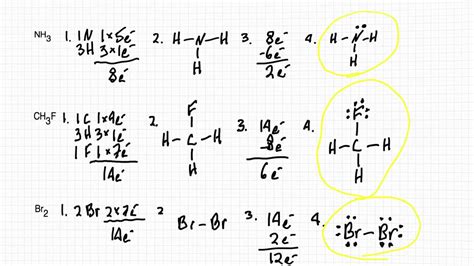 NH₃ 1. 1N 1×5e⁻ 2. H–N–H 3. 8e⁻ 4. H–N–H
3H 3×1e⁻ H -6e⁻ H
8e⁻ 2e⁻
CH₃F 1. 1C 1×4e⁻ 2. F 3. 14e⁻ 4. F
3H 3×1e⁻ H–C–H -8e⁻ H–C–H
1F 1×7e⁻ H 6e⁻ H
14e⁻
Br₂ 1. 2Br 2×7e⁻ 2 Br–Br 3. 14e⁻ 4. Br–Br
14e⁻ 2e⁻
12e⁻